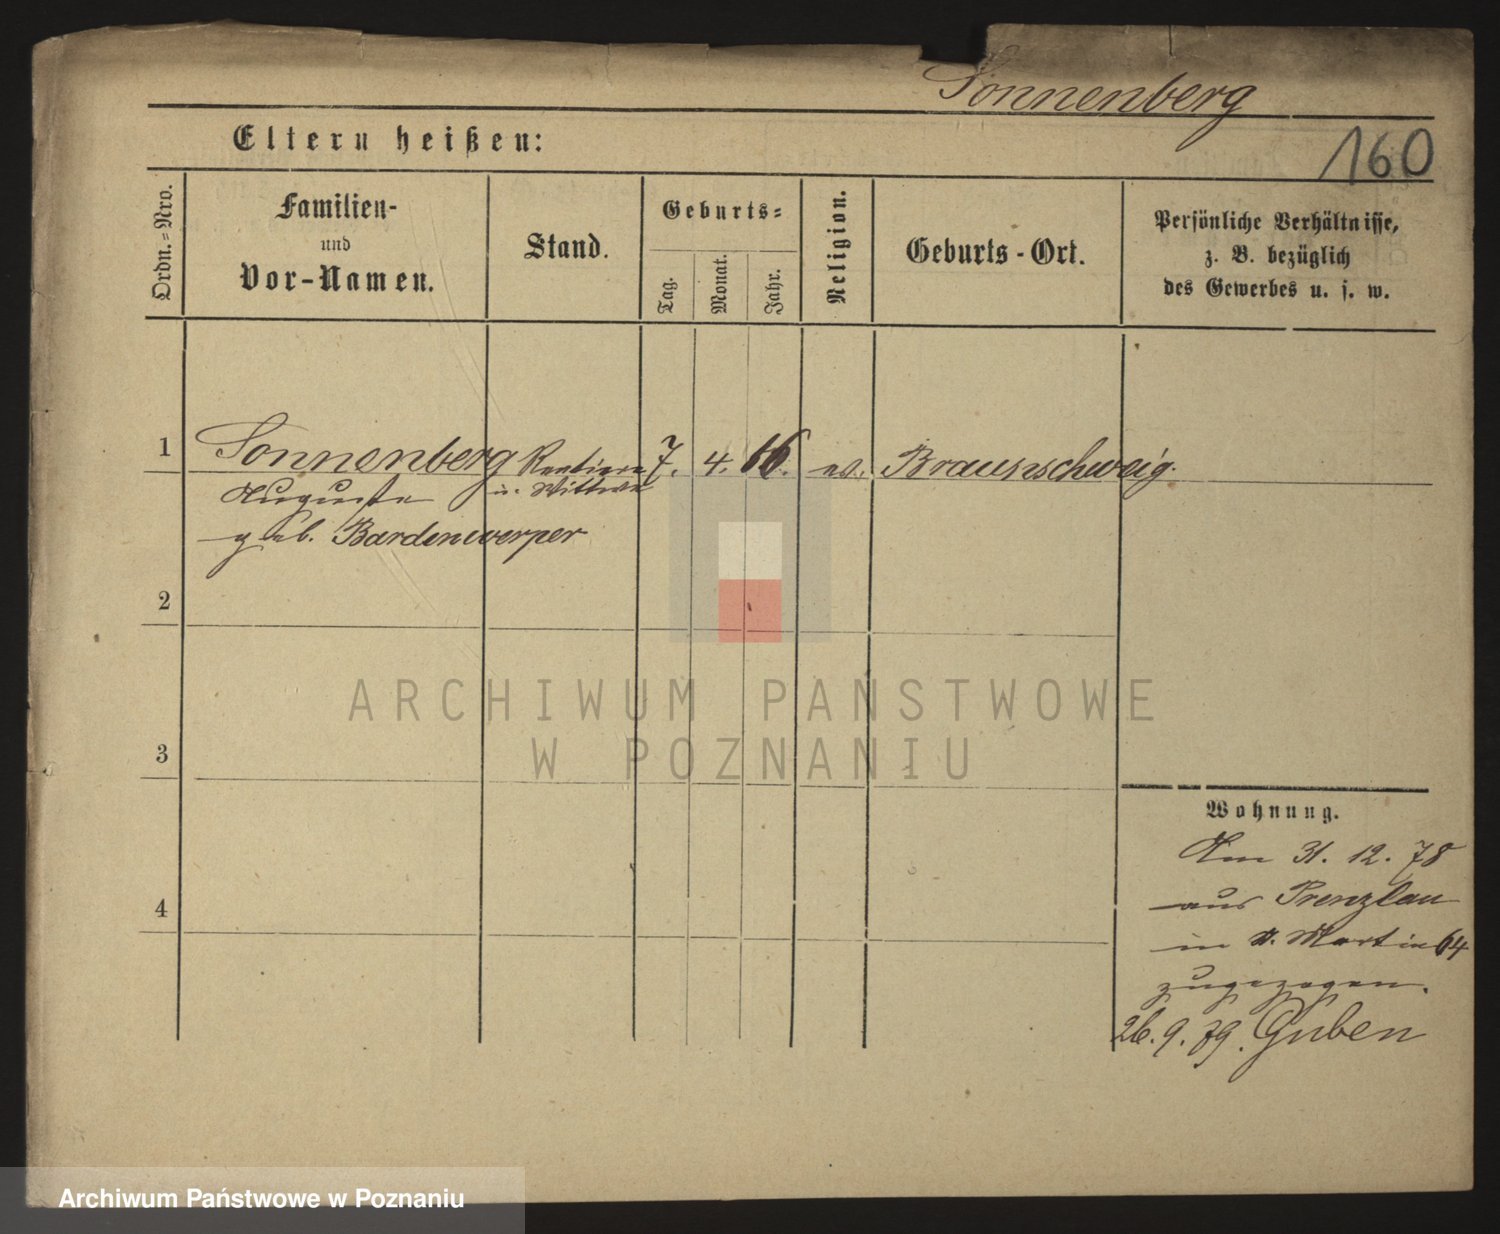 Sonnenberg
160
Eltern heißen:
Ordn.=Nro.
Familien-
und
Vor-Namen.
Stand.
Geburts=
Tag.
Monat.
Jahr.
Religion.
Geburts-Ort.
Persönliche Verhältnisse,
z. B. bezüglich
des Gewerbes u. s. w.
1
Sonnenberg Rentiere 7. 4. 16. ev. Braunschweig.
Auguste u. Wittwe
geb. Bardenwerper
2
ARCHIWUM PAŃSTWOWE
W POZNANIU
3
Wohnung.
Am 31. 12. 78
aus Prenzlau
4
in St. Martin 64
zugezogen.
26. 9. 79. Guben
Archiwum Państwowe w Poznaniu